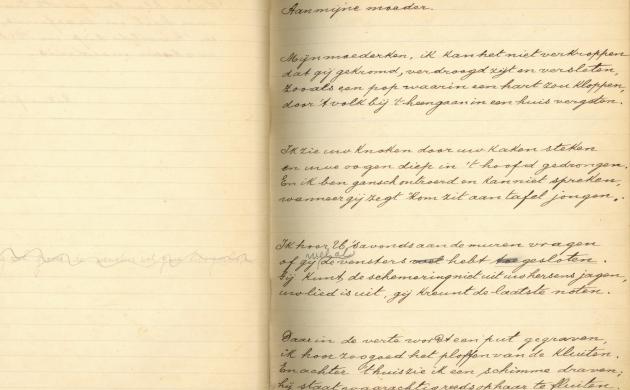 Aan mijne moeder.
Mijn moederken, ik kan het niet verkroppen
dat gij gekromd, verdroogd zijt en versleten,
zooals een pop waarin een hart zou kloppen,
door 't volk bij 't heengaan in een huis vergeten.
Ik zie uw knoken door uw kaken steken
en uwe oogen diep in 't hoofd gedrongen.
En ik ben gansch ontroerd en kan niet spreken,
wanneer gij zegt kom zit aan tafel jongen.
Ik hoor U 's avonds aan de muren vragen
of gij de vensters wel hebt gesloten.
Gij kunt de schemering niet uit uw hersens jagen,
uw lied is uit, gij kreunt de laatste noten.
Daar in de verte wordt een put gegraven,
ik hoor zoo goed het ploffen van de kluiten.
En achter 't huis zie ik een schimme draven;
hij staat